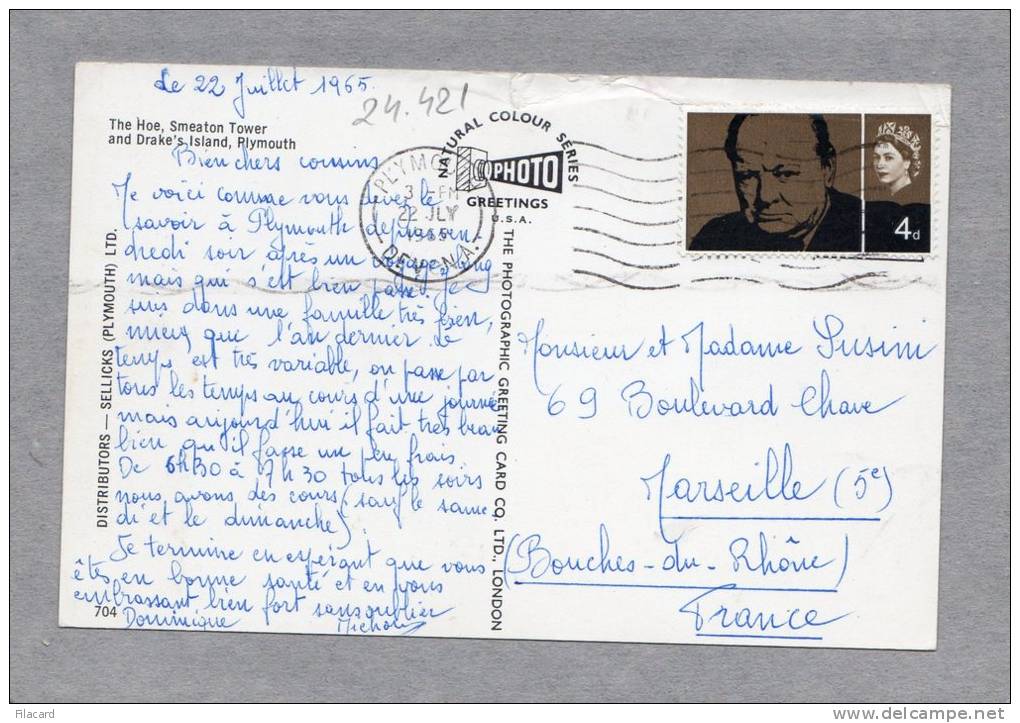 Le 22 Juillet 1965.
24.421
The Hoe, Smeaton Tower
and Drake's Island, Plymouth
Bien chers cousins
Me voici comme vous devez le
savoir à Plymouth depuis ven-
dredi soir après un voyage long
mais qui s'est bien passé. Je
suis dans une famille très bien,
mieux que l'an dernier. Le
temps est très variable, on passe par
tous les temps au cours d'une journée
mais aujourd'hui il fait très beau
bien qu'il fasse un peu frais.
De 6h30 à 7h30 tous les soirs
nous avons des cours (sauf le same-
di et le dimanche).
Je termine en espérant que vous
êtes en bonne santé et en vous
embrassant bien fort sans oublier
Dominique
704
DISTRIBUTORS — SELLICKS (PLYMOUTH) LTD.
NATURAL COLOUR SERIES
PHOTO
GREETINGS
U.S.A.
THE PHOTOGRAPHIC GREETING CARD CO. LTD., LONDON
PLYMOU
3 - PM
22 JLY
1965
DEVON.A.
4d
Monsieur et Madame Susini
69 Boulevard Chave
Marseille (5e)
(Bouches-du-Rhône)
France
Filacard
www.delcampe.net